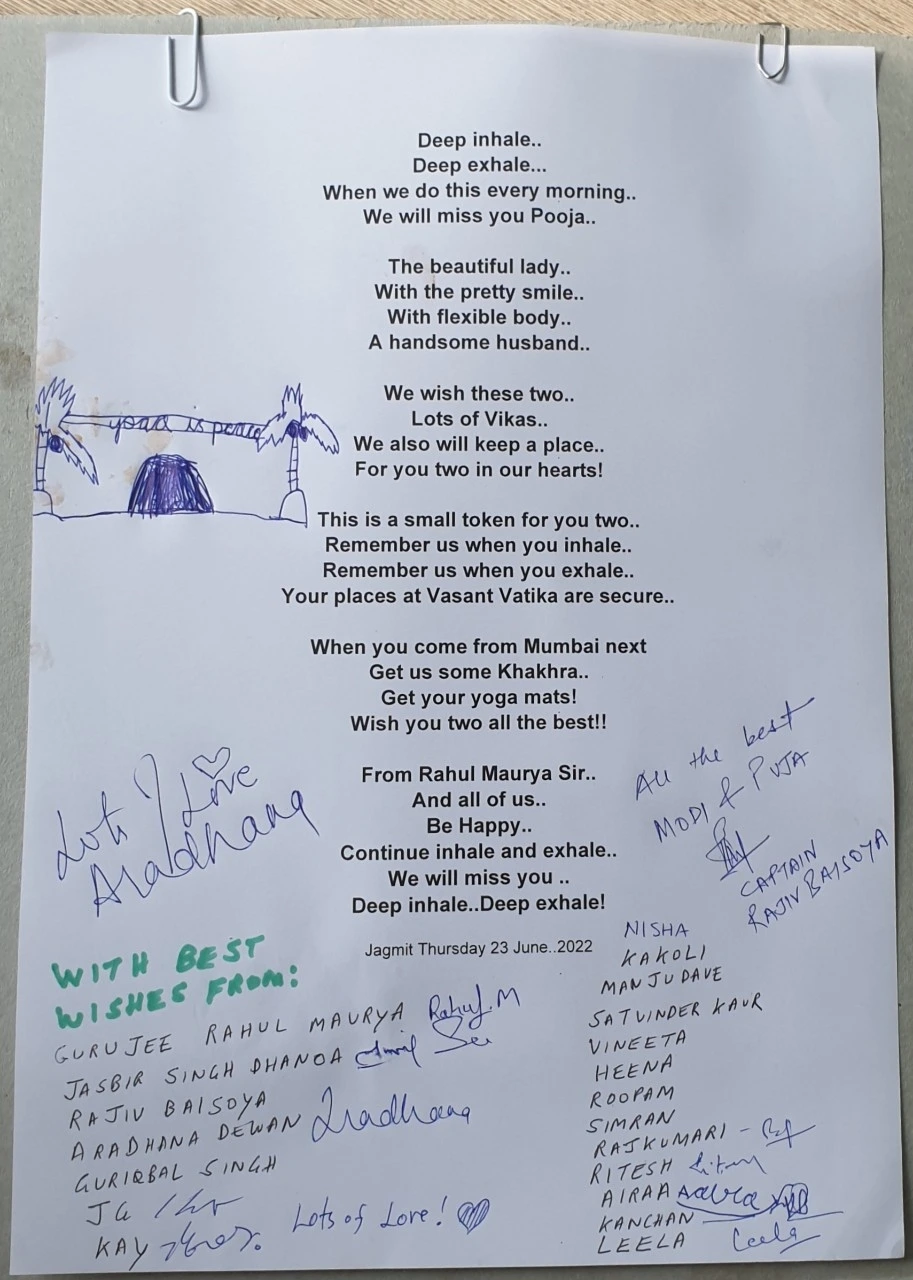 Deep inhale..
Deep exhale...
When we do this every morning..
We will miss you Pooja..
The beautiful lady..
With the pretty smile..
With flexible body..
A handsome husband..
We wish these two..
Lots of Vikas..
We also will keep a place..
For you two in our hearts!
yoga is peace
This is a small token for you two..
Remember us when you inhale..
Remember us when you exhale..
Your places at Vasant Vatika are secure..
When you come from Mumbai next
Get us some Khakhra..
Get your yoga mats!
Wish you two all the best!!
From Rahul Maurya Sir..
And all of us..
Be Happy..
Continue inhale and exhale..
We will miss you ..
Deep inhale..Deep exhale!
Jagmit Thursday 23 June..2022
Love
Aradhana
All the best
MODI & PUJA
CAPTAIN
RAJIV BAISOYA
WITH BEST
WISHES FROM:
GURUJEE RAHUL MAURYA Rahul.M
JASBIR SINGH DHANOA
RAJIV BAISOYA
ARADHANA DEWAN Aradhana
GURIQBAL SINGH
JG
KAY
Lots of Love!
NISHA
KAKOLI
MANJU DAVE
SATVINDER KAUR
VINEETA
HEENA
ROOPAM
SIMRAN
RAJKUMARI -
RITESH
AIRAA
KANCHAN
LEELA Leela